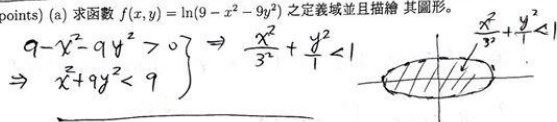 points) (a) 求函數 f(x, y) = ln(9 − x² − 9y²) 之定義域並且描繪 其圖形。
9-x²-9y² > 0 } ⇒ x²/3² + y²/1 < 1
⇒ x²+9y² < 9
x²/3² + y²/1 < 1